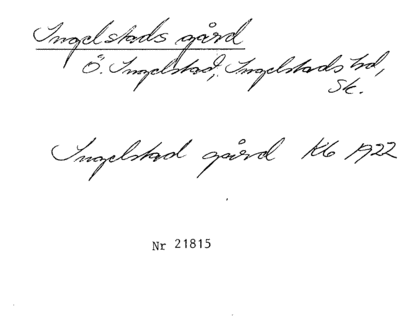 Ingelstads gård
Ö. Ingelstad, Ingelstads hd,
Sk.
Ingelstad gård Kb 1922
Nr 21815